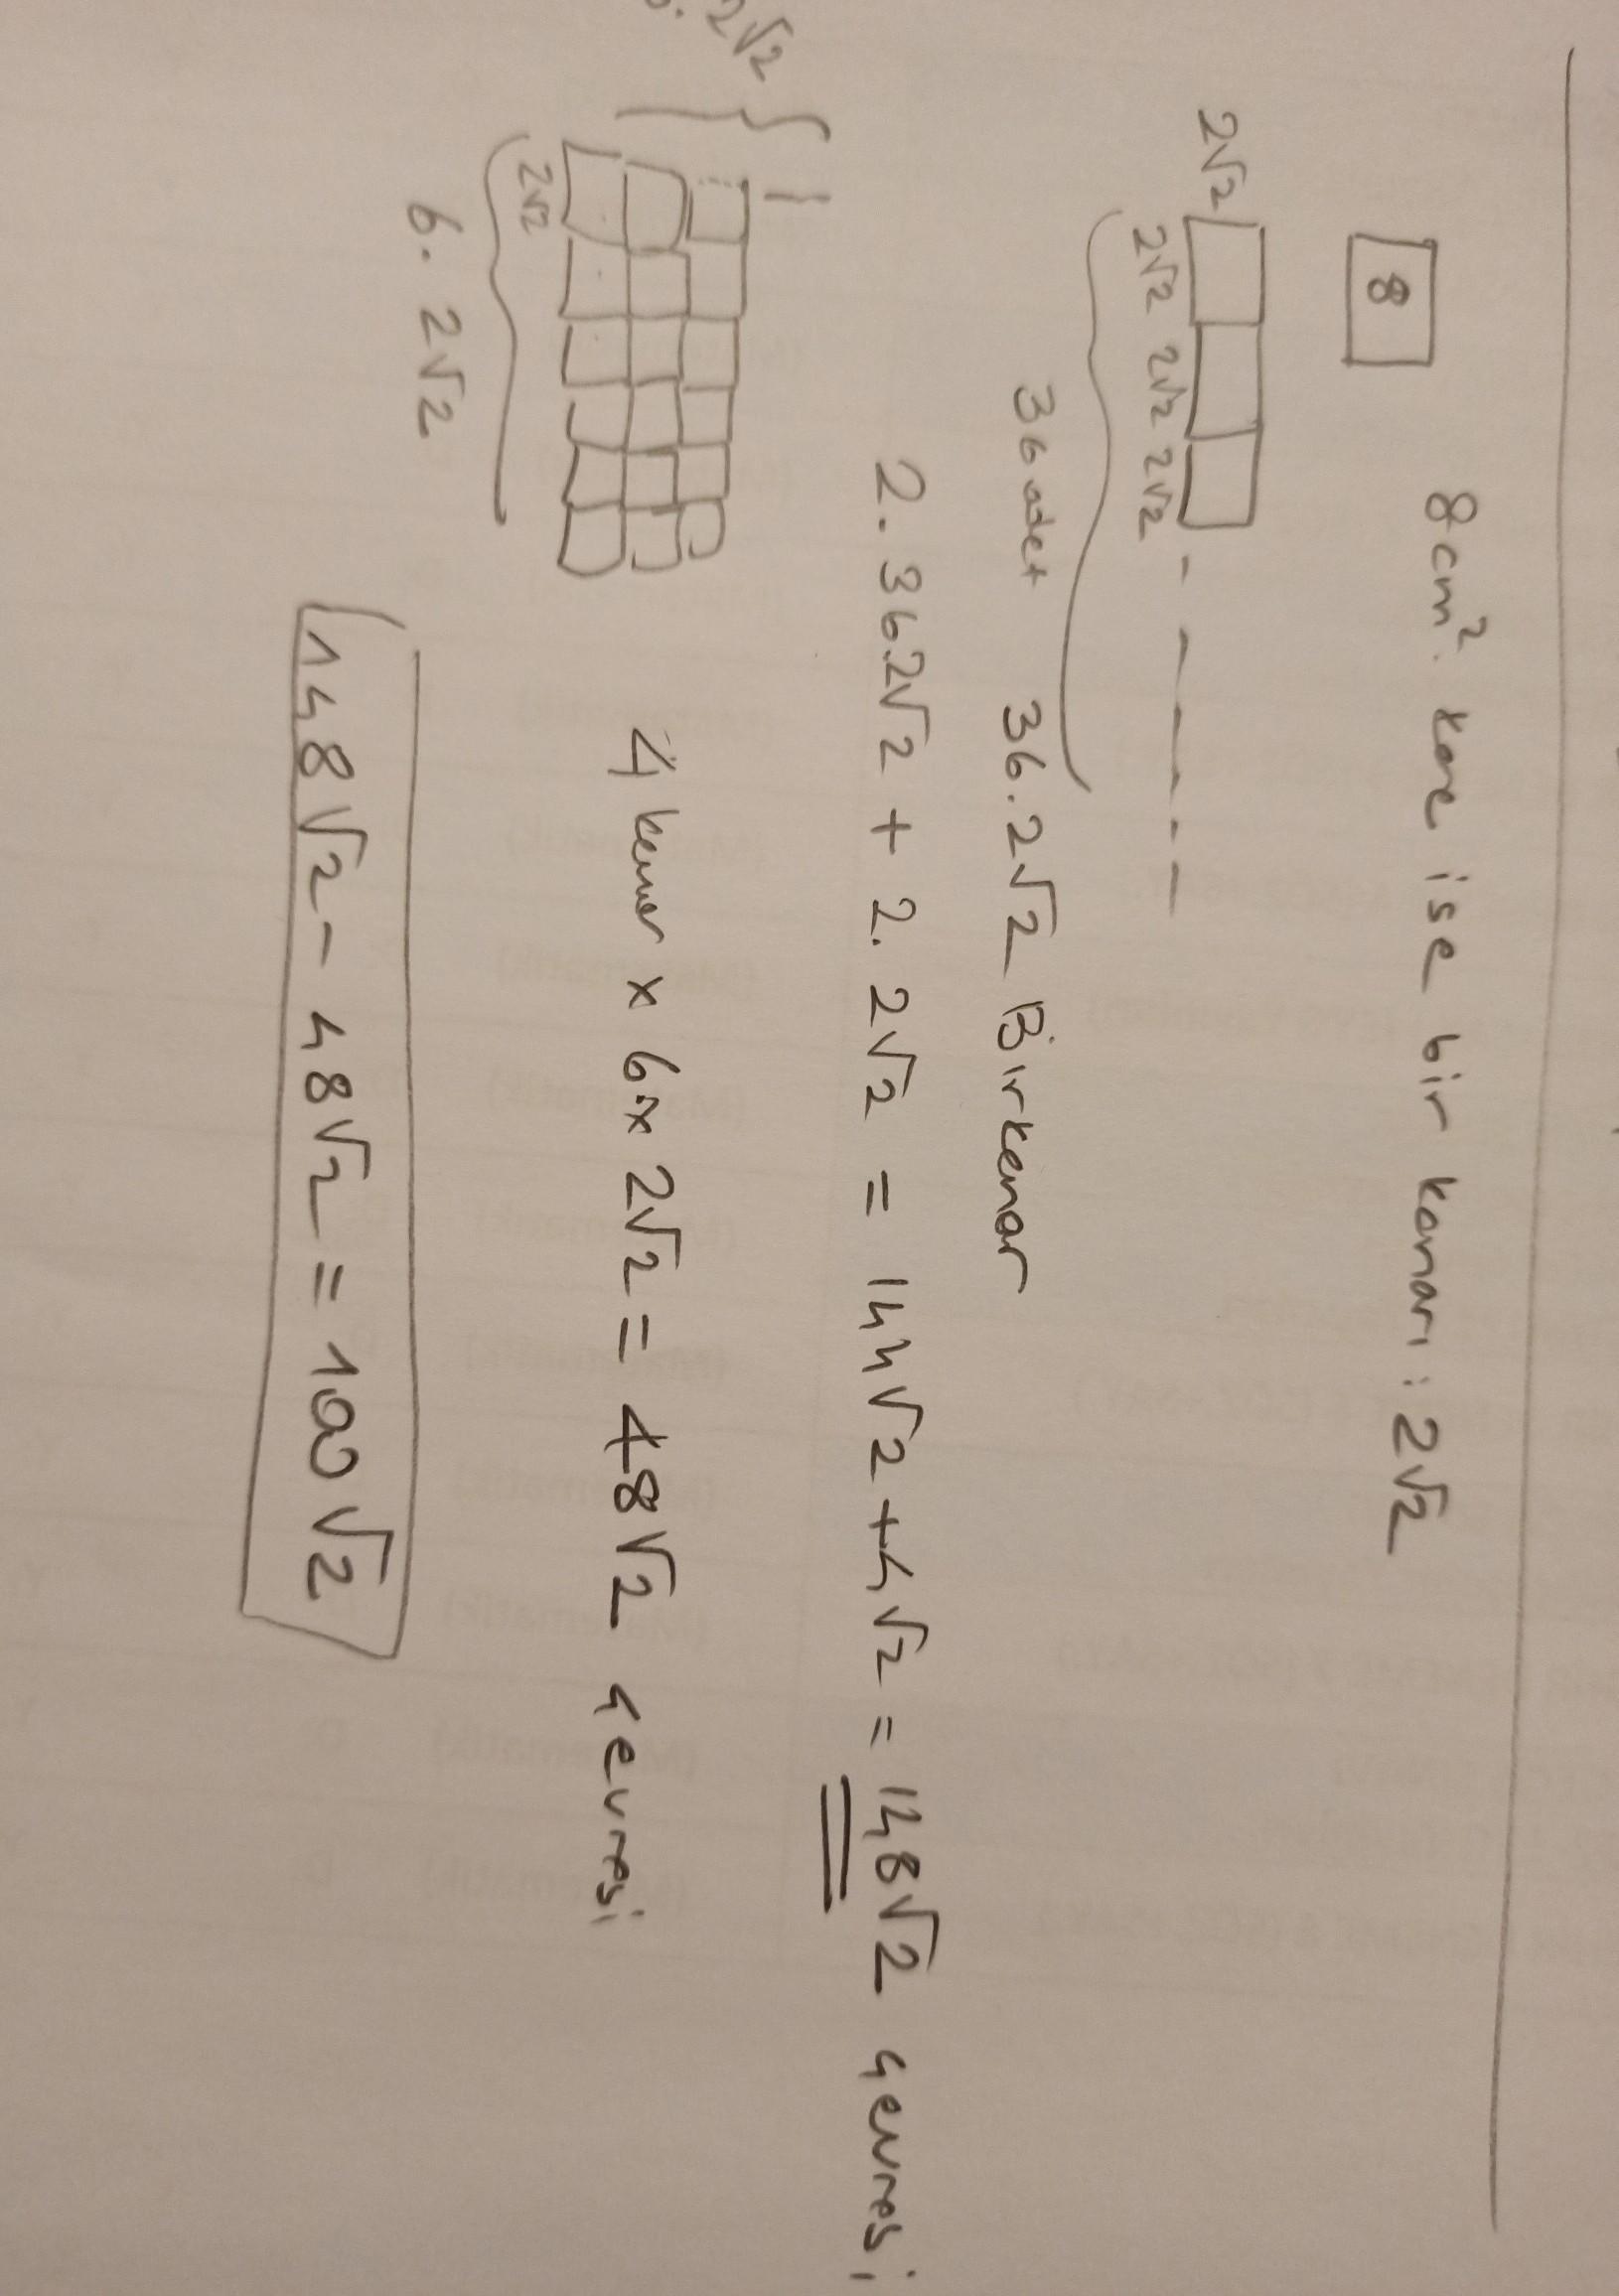 8cm². kare ise bir kenarı : 2√2
8
2√2
2√2 2√2 2√2
36 adet 36.2√2 Bir kenar
2. 36.2√2 + 2. 2√2 = 144√2 + 4√2 = 148√2 çevresi
2√2
2√2
6. 2√2
4 kenar x 6 x 2√2 = 48√2 çevresi
148√2 - 48√2 = 100√2